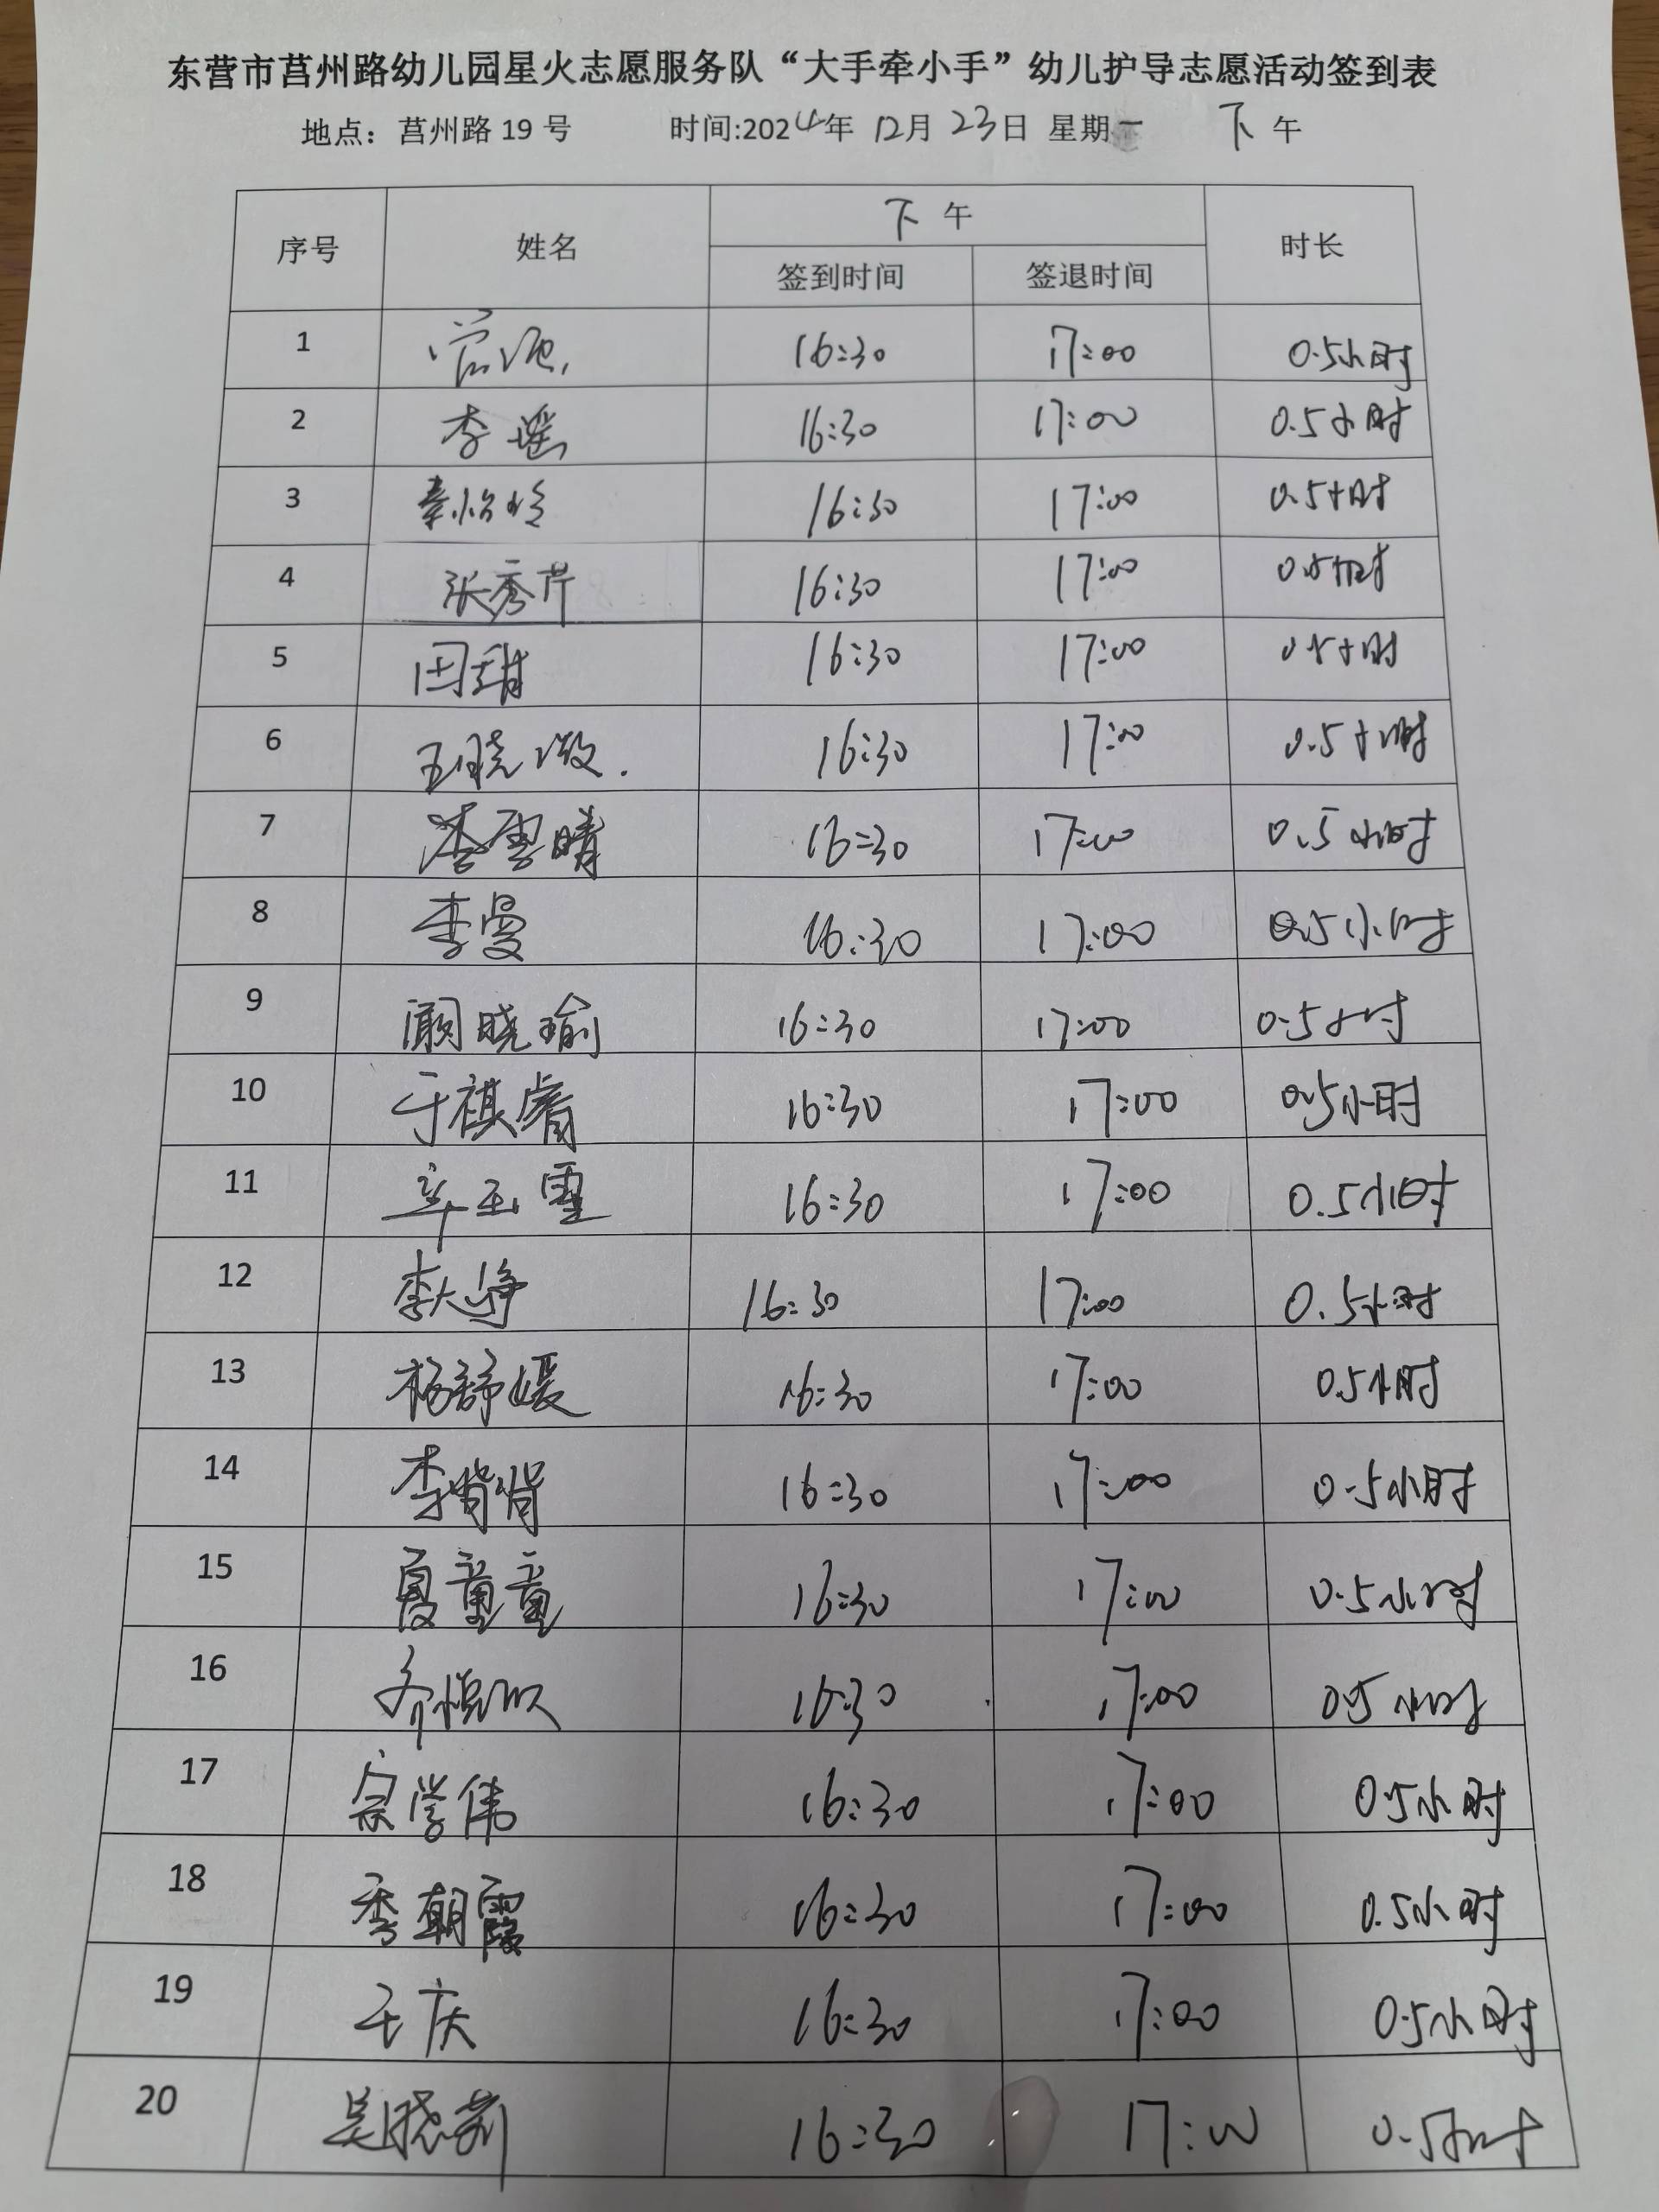 东营市莒州路幼儿园星火志愿服务队“大手牵小手”幼儿护导志愿活动签到表
地点：莒州路 19 号 时间:2024年 12月 23日 星期一 下 午
序号 姓名 下 午 时长
签到时间 签退时间
1 16:30 17:00 0.5小时
2 李瑶 16:30 17:00 0.5小时
3 秦怡玲 16:30 17:00 0.5小时
4 张秀芹 16:30 17:00 0.5小时
5 田甜 16:30 17:00 0.5小时
6 王晓 16:30 17:00 0.5小时
7 李雪晴 16:30 17:00 0.5小时
8 李曼 16:30 17:00 0.5小时
9 阚晓瑜 16:30 17:00 0.5小时
10 于祺睿 16:30 17:00 0.5小时
11 16:30 17:00 0.5小时
12 李大静 16:30 17:00 0.5小时
13 杨舒媛 16:30 17:00 0.5小时
14 李肖肖 16:30 17:00 0.5小时
15 夏童童 16:30 17:00 0.5小时
16 16:30 17:00 0.5小时
17 宗学伟 16:30 17:00 0.5小时
18 季朝霞 16:30 17:00 0.5小时
19 王庆 16:30 17:00 0.5小时
20 吴晓莉 16:30 17:00 0.5小时